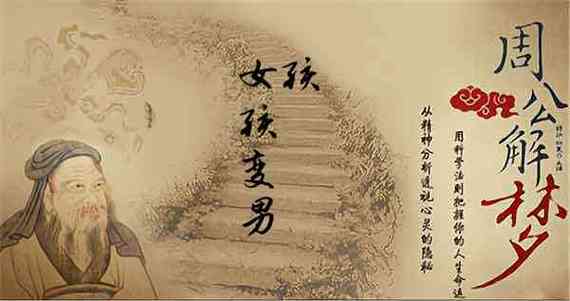 周公解梦
用科学法则把握你的人生命运
从精神分析透视心灵的隐秘
女孩变男
孩